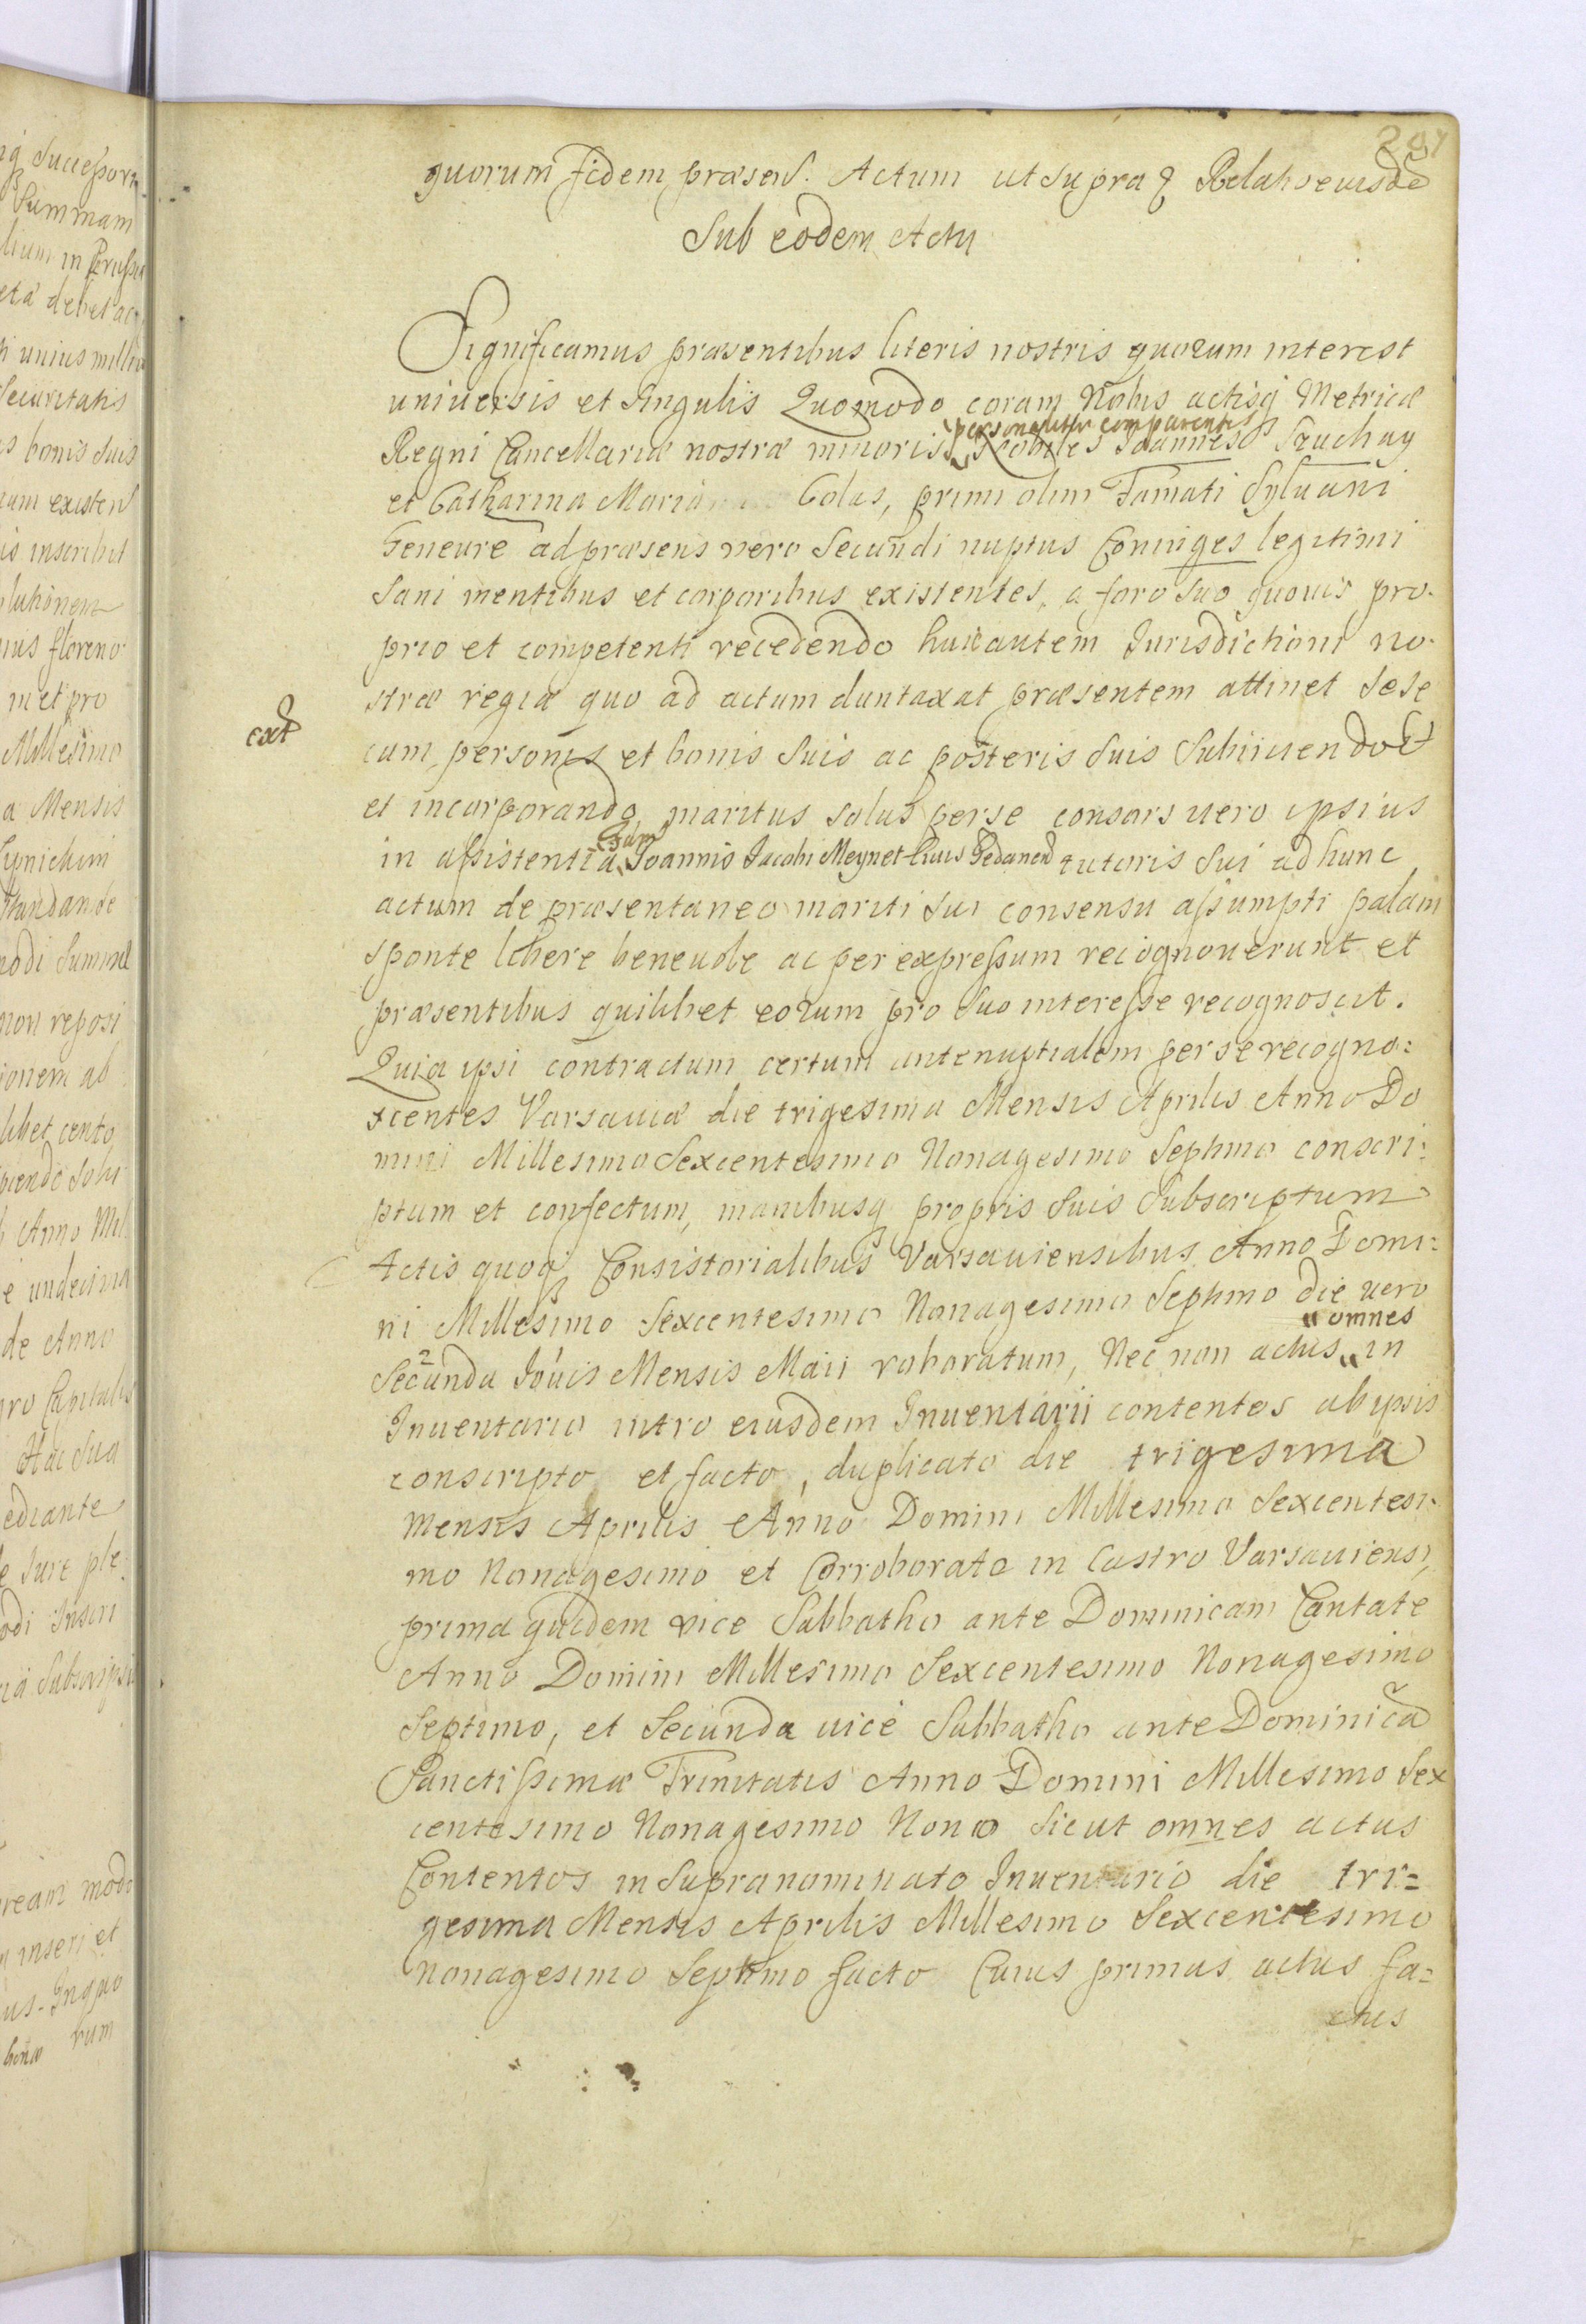 quorum fidem præsen. Actum ut supra Relatio eiusde
Sub eodem Actu
Significamus præsentibus literis nostris quorum interest
universis et singulis Quomodo coram Nobis actisq Metricæ
personaliter comparentes
Regni Cancellariæ nostræ minoris Nobiles Joannes Szuchay
et Catharina Maria Colas, primi olim Famati Sylvani
Geneure ad præsens vero Secundi nuptus Coniuges legitimi
Sani mentibus et corporibus existentes, a foro suo quovis pro-
prio et competenti recedendo huic autem Jurisdictioni no-
stræ regiæ quo ad actum duntaxat præsentem attinet sese
ext
cum personis et bonis Suis ac posteris Suis Subiiciendo
et incorporando, maritus solus per se consors uero ipsius
Fam
in assistentia Joannis Jacobi Meynet Ciuis Gedanen tutoris Sui ad hunc
actum de præsentaneo mariti sui consensu assumpti palam
sponte libere beneuole ac per expressum recognouerunt et
præsentibus quilibet eorum pro Suo interesse recognoscit.
Quia ipsi contractum certum antenuptialem per se recogno:
scentes Varsauiæ die trigesima Mensis Aprilis Anno Do
mini Millesimo Sexcentesimo Nonagesimo Septimo conscri:
ptum et confectum, manibusq propris Suis Subscriptum
Actis quoq Consistorialibus Varsauiensibus Anno Domi:
ni Millesimo Sexcentesimo Nonagesimo Septimo die uero
omnes
Secunda Jouis Mensis Maii roboratum, Nec non actus in
Inuentario intro eiusdem Inuentarii contentos ab ipsis
conscripto et facto, duplicato die trigesima
mensis Aprilis Anno Domini Millesimo Sexcentesi-
mo Nonagesimo et Corroborato in Castro Varsauiensi,
prima quidem vice Sabbatho ante Dominicam Cantate
Anno Domini Millesimo Sexcentesimo Nonagesimo
Septimo, et Secunda uice Sabbatho ante Dominicã
Sanctissimæ Trinitatis Anno Domini Millesimo Sex
centesimo Nonagesimo Nono sicut omnes actus
Contentos in Supranominato Inuentario die tri=
gesima Mensis Aprilis Millesimo Sexcentesimo
nonagesimo Septimo facto Cuius primus actus fa=
ctus